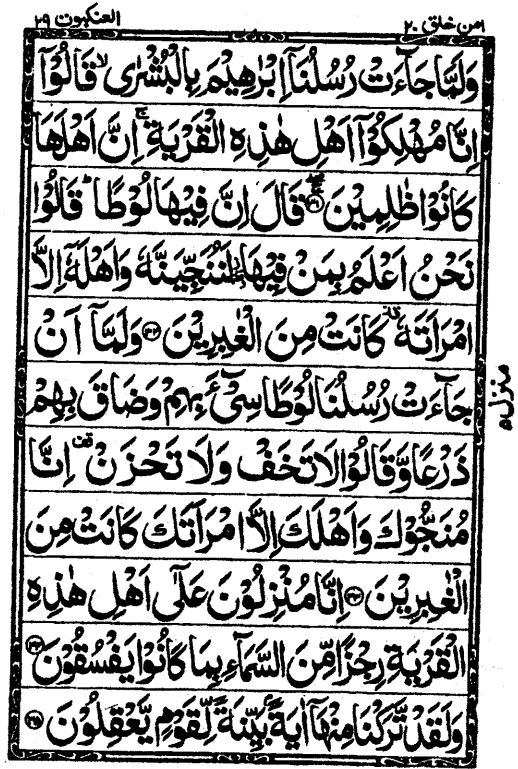 امن خلق ٢٠
العنكبوت ٢٩
وَلَمَّا جَآءَتْ رُسُلُنَآ اِبْرٰهِيْمَ بِالْبُشْرٰى ۙ قَالُوْٓا
اِنَّا مُهْلِكُوْٓا اَهْلِ هٰذِهِ الْقَرْيَةِ ۚ اِنَّ اَهْلَهَا
كَانُوْا ظٰلِمِيْنَ ۝٣١ قَالَ اِنَّ فِيْهَا لُوْطًا ؕ قَالُوْا
نَحْنُ اَعْلَمُ بِمَنْ فِيْهَا ٘ لَنُنَجِّيَنَّهٗ وَاَهْلَهٗٓ اِلَّا
امْرَاَتَهٗ ٗ كَانَتْ مِنَ الْغٰبِرِيْنَ ۝٣٢ وَلَمَّآ اَنْ
جَآءَتْ رُسُلُنَا لُوْطًا سِيْٓءَ بِهِمْ وَضَاقَ بِهِمْ
ذَرْعًا وَّقَالُوْا لَا تَخَفْ وَلَا تَحْزَنْ ۫ اِنَّا
مُنَجُّوْكَ وَاَهْلَكَ اِلَّا امْرَاَتَكَ كَانَتْ مِنَ
الْغٰبِرِيْنَ ۝٣٣ اِنَّا مُنْزِلُوْنَ عَلٰٓى اَهْلِ هٰذِهِ
الْقَرْيَةِ رِجْزًا مِّنَ السَّمَآءِ بِمَا كَانُوْا يَفْسُقُوْنَ ۝٣٤
وَلَقَدْ تَّرَكْنَا مِنْهَآ اٰيَةًۢ بَيِّنَةً لِّقَوْمٍ يَّعْقِلُوْنَ ۝٣٥
منزل ٥